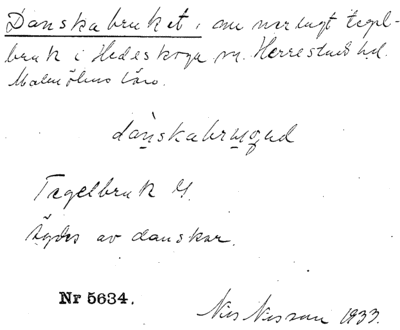 Danskabruket, om nerlagt tegel-
bruk i Hedeskoga sn. Herrestads hd.
Malmöhus län.
Tegelbruk
Ägdes av danskar.
Nr 5634.
Nils Nilsson 1933.